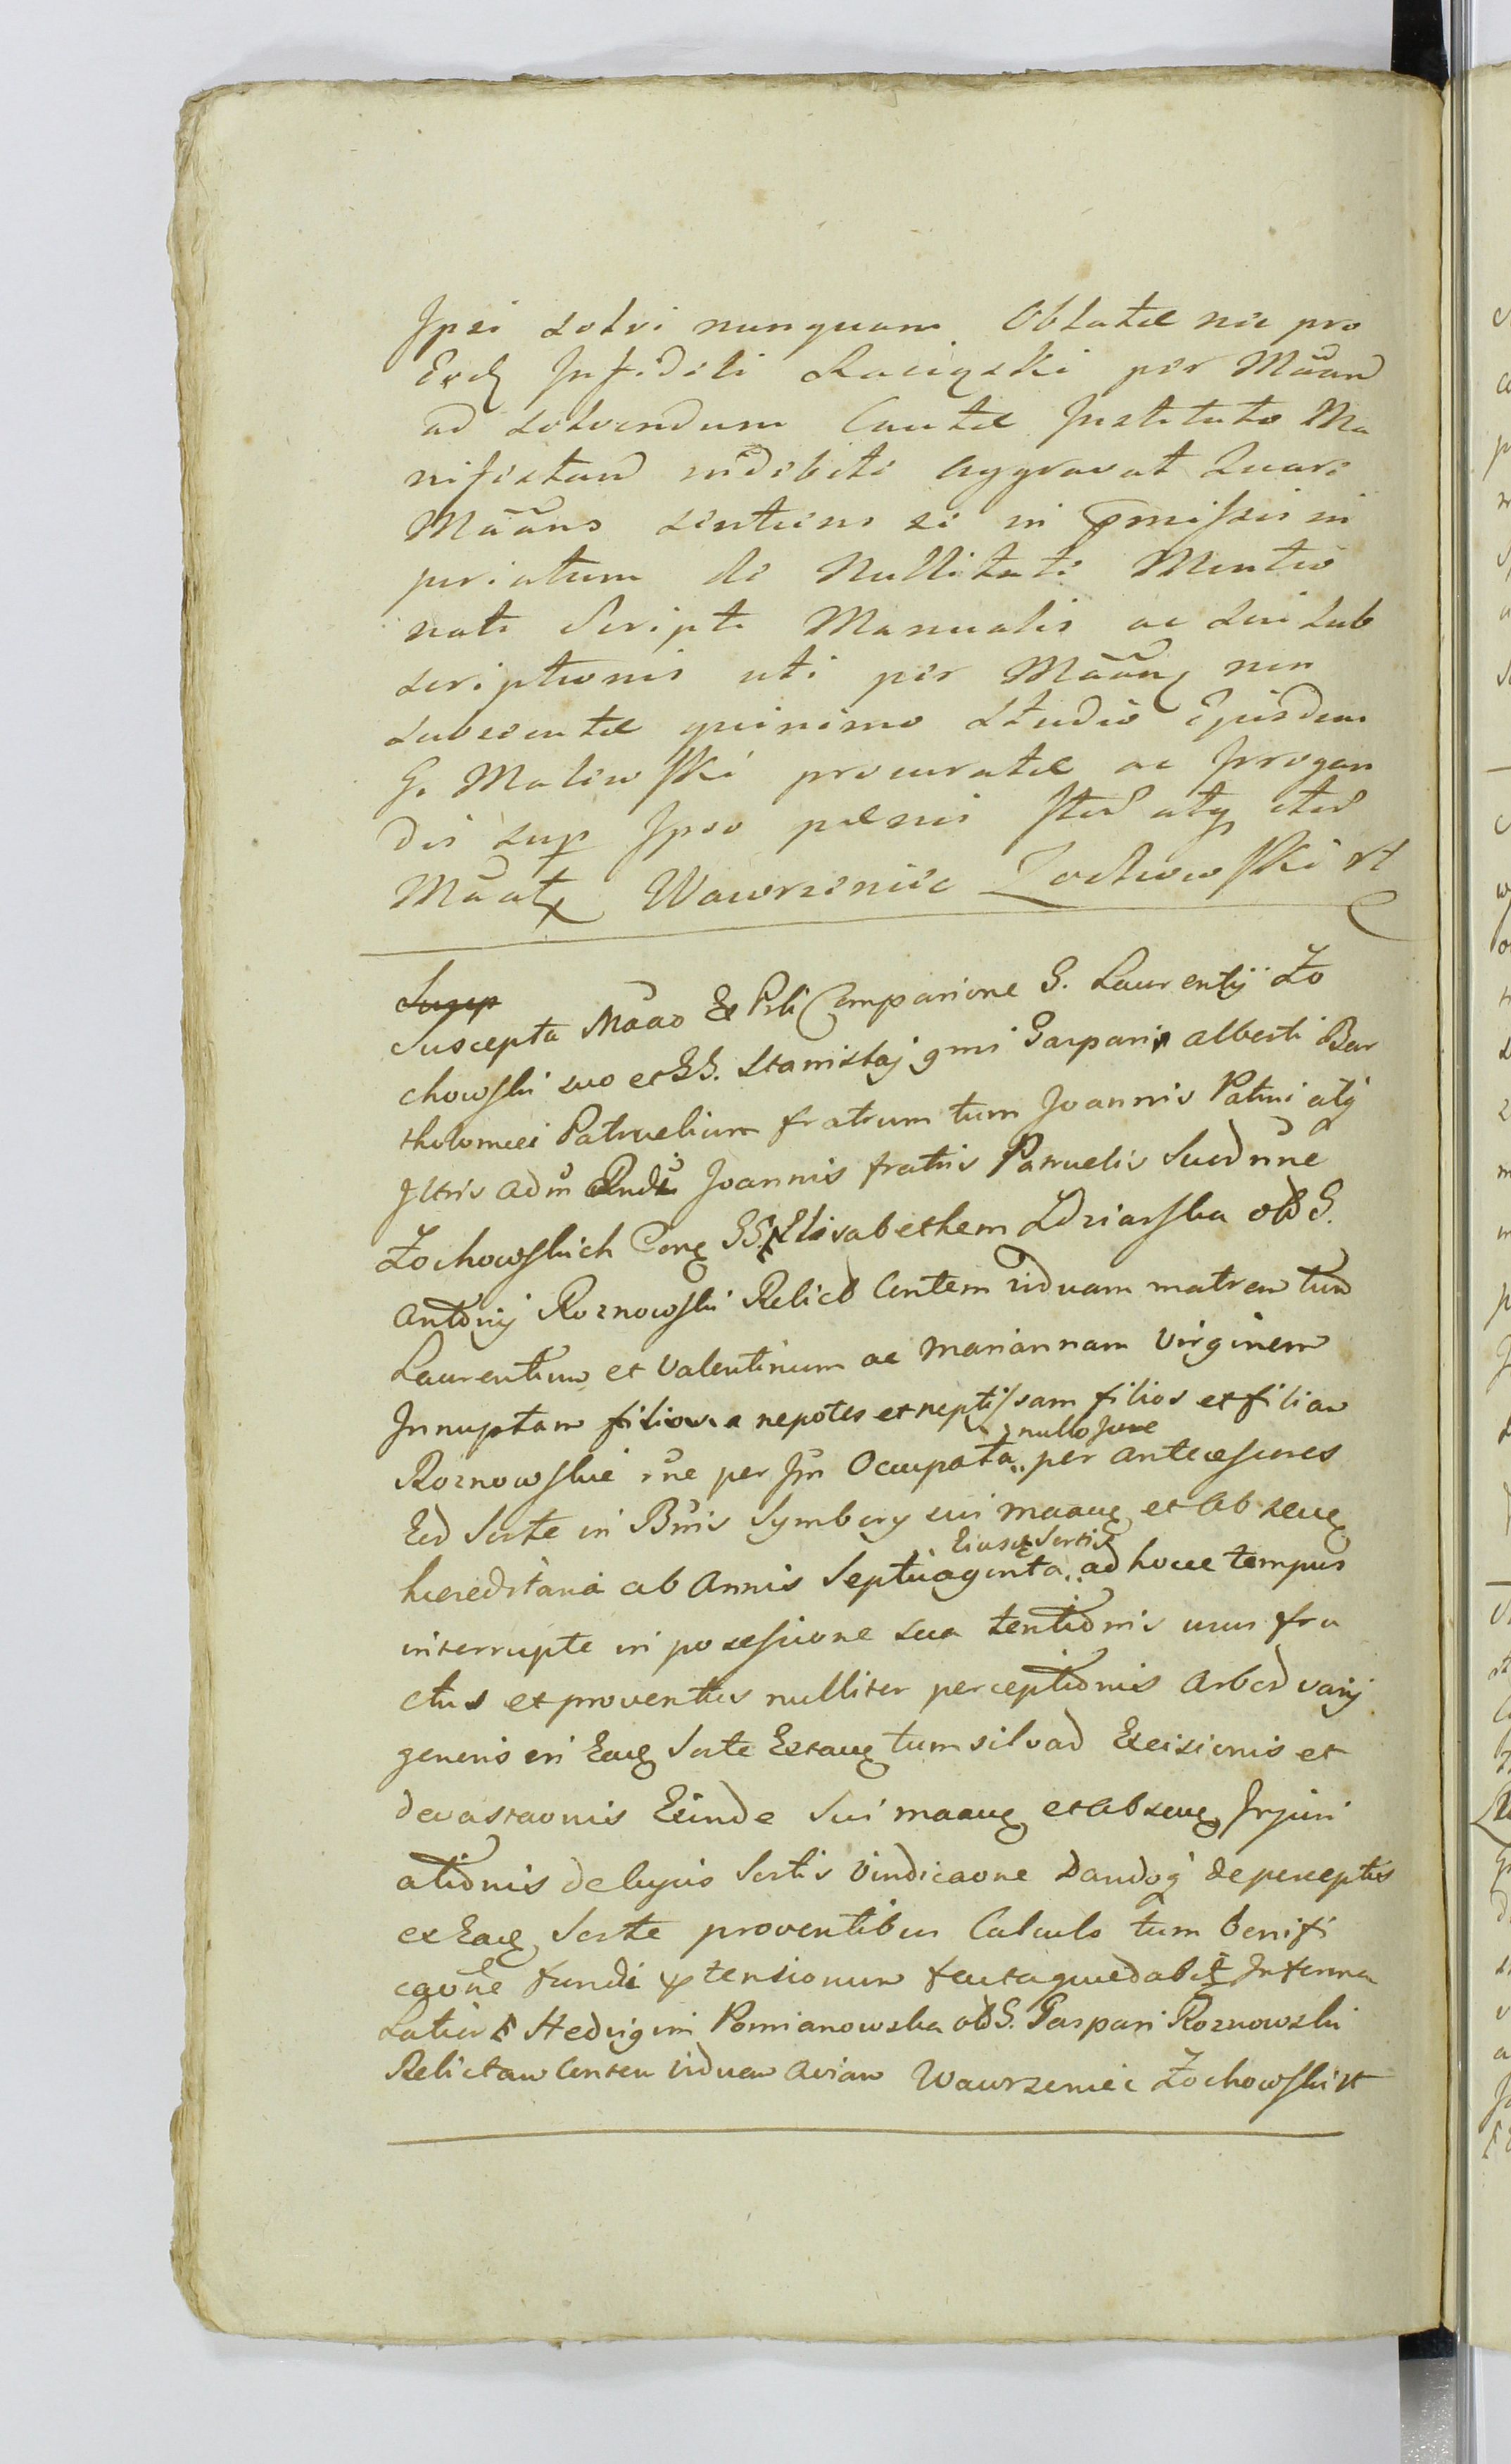 Ipsi solvi nunquam Oblatæ nec pro
Erdz Infideli Raciąski per Māān
ad solvendum Cautæ Institutæ Ma
nifestan indebite Aggravat Quare
Māāns sentiens se in pmissis in
juriatum de Nullitate Mentio
nati Scripti Manualis ac sui sub
scriptionis uti per Māān non
subsecutæ quinimo studio Ejusdem
G. Malewski procuratæ ac Irrogan
dis sup Ipso pænis Iter atq iter
Māat Wawrzeniec Zochowski
Suscepta Māāo Ex Prli Comparione G. Laurentij Zo
chowski suo et GG. Stanislaj gmi Gaspari alberti Bar
tholomei Patruelium fratrum tum Joannis Patrui atq
Iltris adm Rndi Joannis fratris Patruelis Sued nne
Zochowskich Conq GG. Elisabethem Zdziarska olb G.
Antonij Roznowski Relict Contem viduam matrem tum
Laurentium et Valentinum ac Mariannam Virginem
Innuptam filiow a nepotes et neptissam filios et filiam
Roznowskie rne per Im Occupata nullo Jure per antecessores
Eod Sorte in Bnis Symbory sui maanq et Ab senq
hæreditaria ab Annis Septuaginta Ejusd Sortis ad hocce tempus
interrupte in posessione sua tentionis usus fru
ctus et proventus nulliter perceptionis Arbor varij
generis in Eaq Sorte Extanq tum silvar Excisionis et
devastaonis Exinde Sui maanq et Absenq Injuri
ationis de lujus Sortis Vindicaone Dandoq de perceptis
ex Eaq Sorte proventibus Calculo tum benifi
caone fundi ptensionum
Latius Hedvigim Pomianowska olb G. Gaspari Roznowski
Relictam Conten viduam aviam Wawrzeniec Zochowski